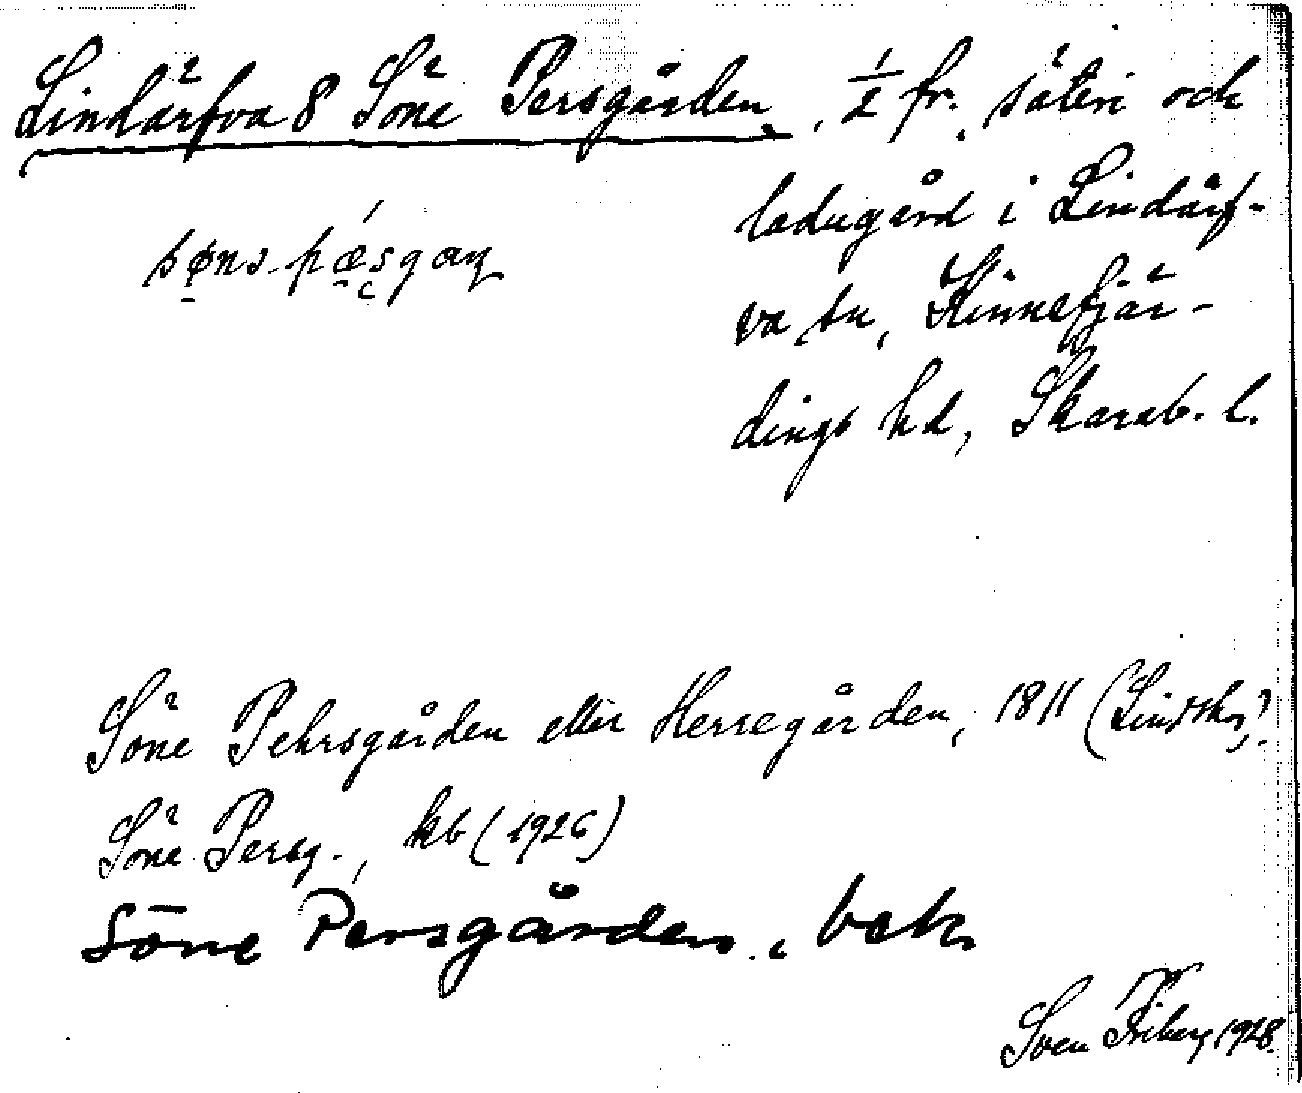 Lindärfva 8 Söne Persgården, 1/2 fr. säteri och
ladugård i Lindärf-
va sn, Kinnefjär-
dings hd, Skarab. l.
sønspæsgaɳ
Söne Pehrsgården eller Herregården, 1811 (Lindskog)
Söne Persg., kb (1926)
Söne Persgården, bek.
Sven Friberg 1928.